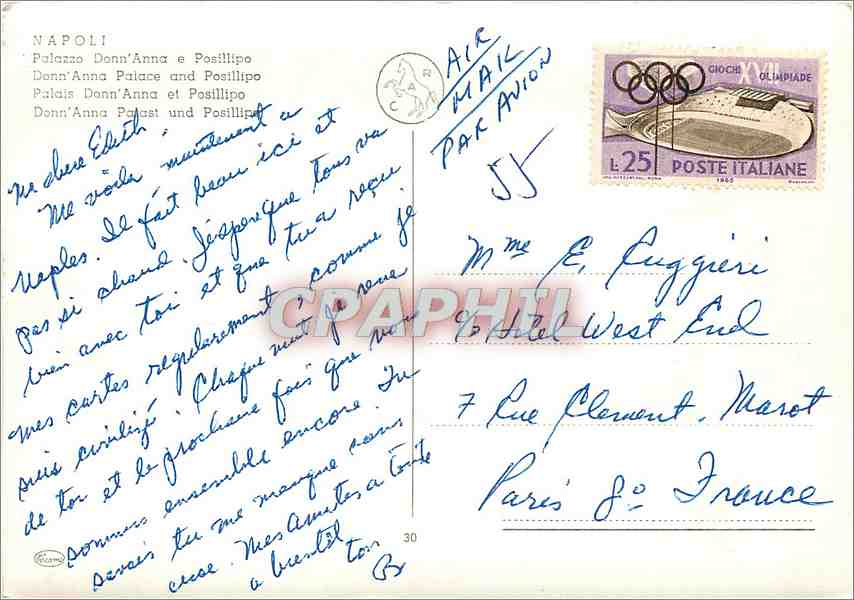 NAPOLI
Palazzo Donn'Anna e Posillipo
Donn'Anna Palace and Posillipo
Palais Donn'Anna et Posillipo
Donn'Anna Palast und Posillipo
CAR
AIR
MAIL
PAR AVION
55
GIOCHI XVII OLIMPIADE
L.25 POSTE ITALIANE
1960
Ma chere Edith
Me voila maintenant a
Naples. Il fait beau ici et
pas si chaud. J'espere que tous va
bien avec toi et que tu a reçu
mes cartes regulierement, comme je
suis civilizé. Chaque nuit je reve
de toi et le prochaine fois que nous
sommes ensemble encore. Tu
savais tu me manque sans
cesse. Mes Amities a toute
a bientôt
ton
Mme E. Ruggieri
c/o Hotel West End
7 Rue Clement. Marot
Paris 8o France
30
CPAPHIL